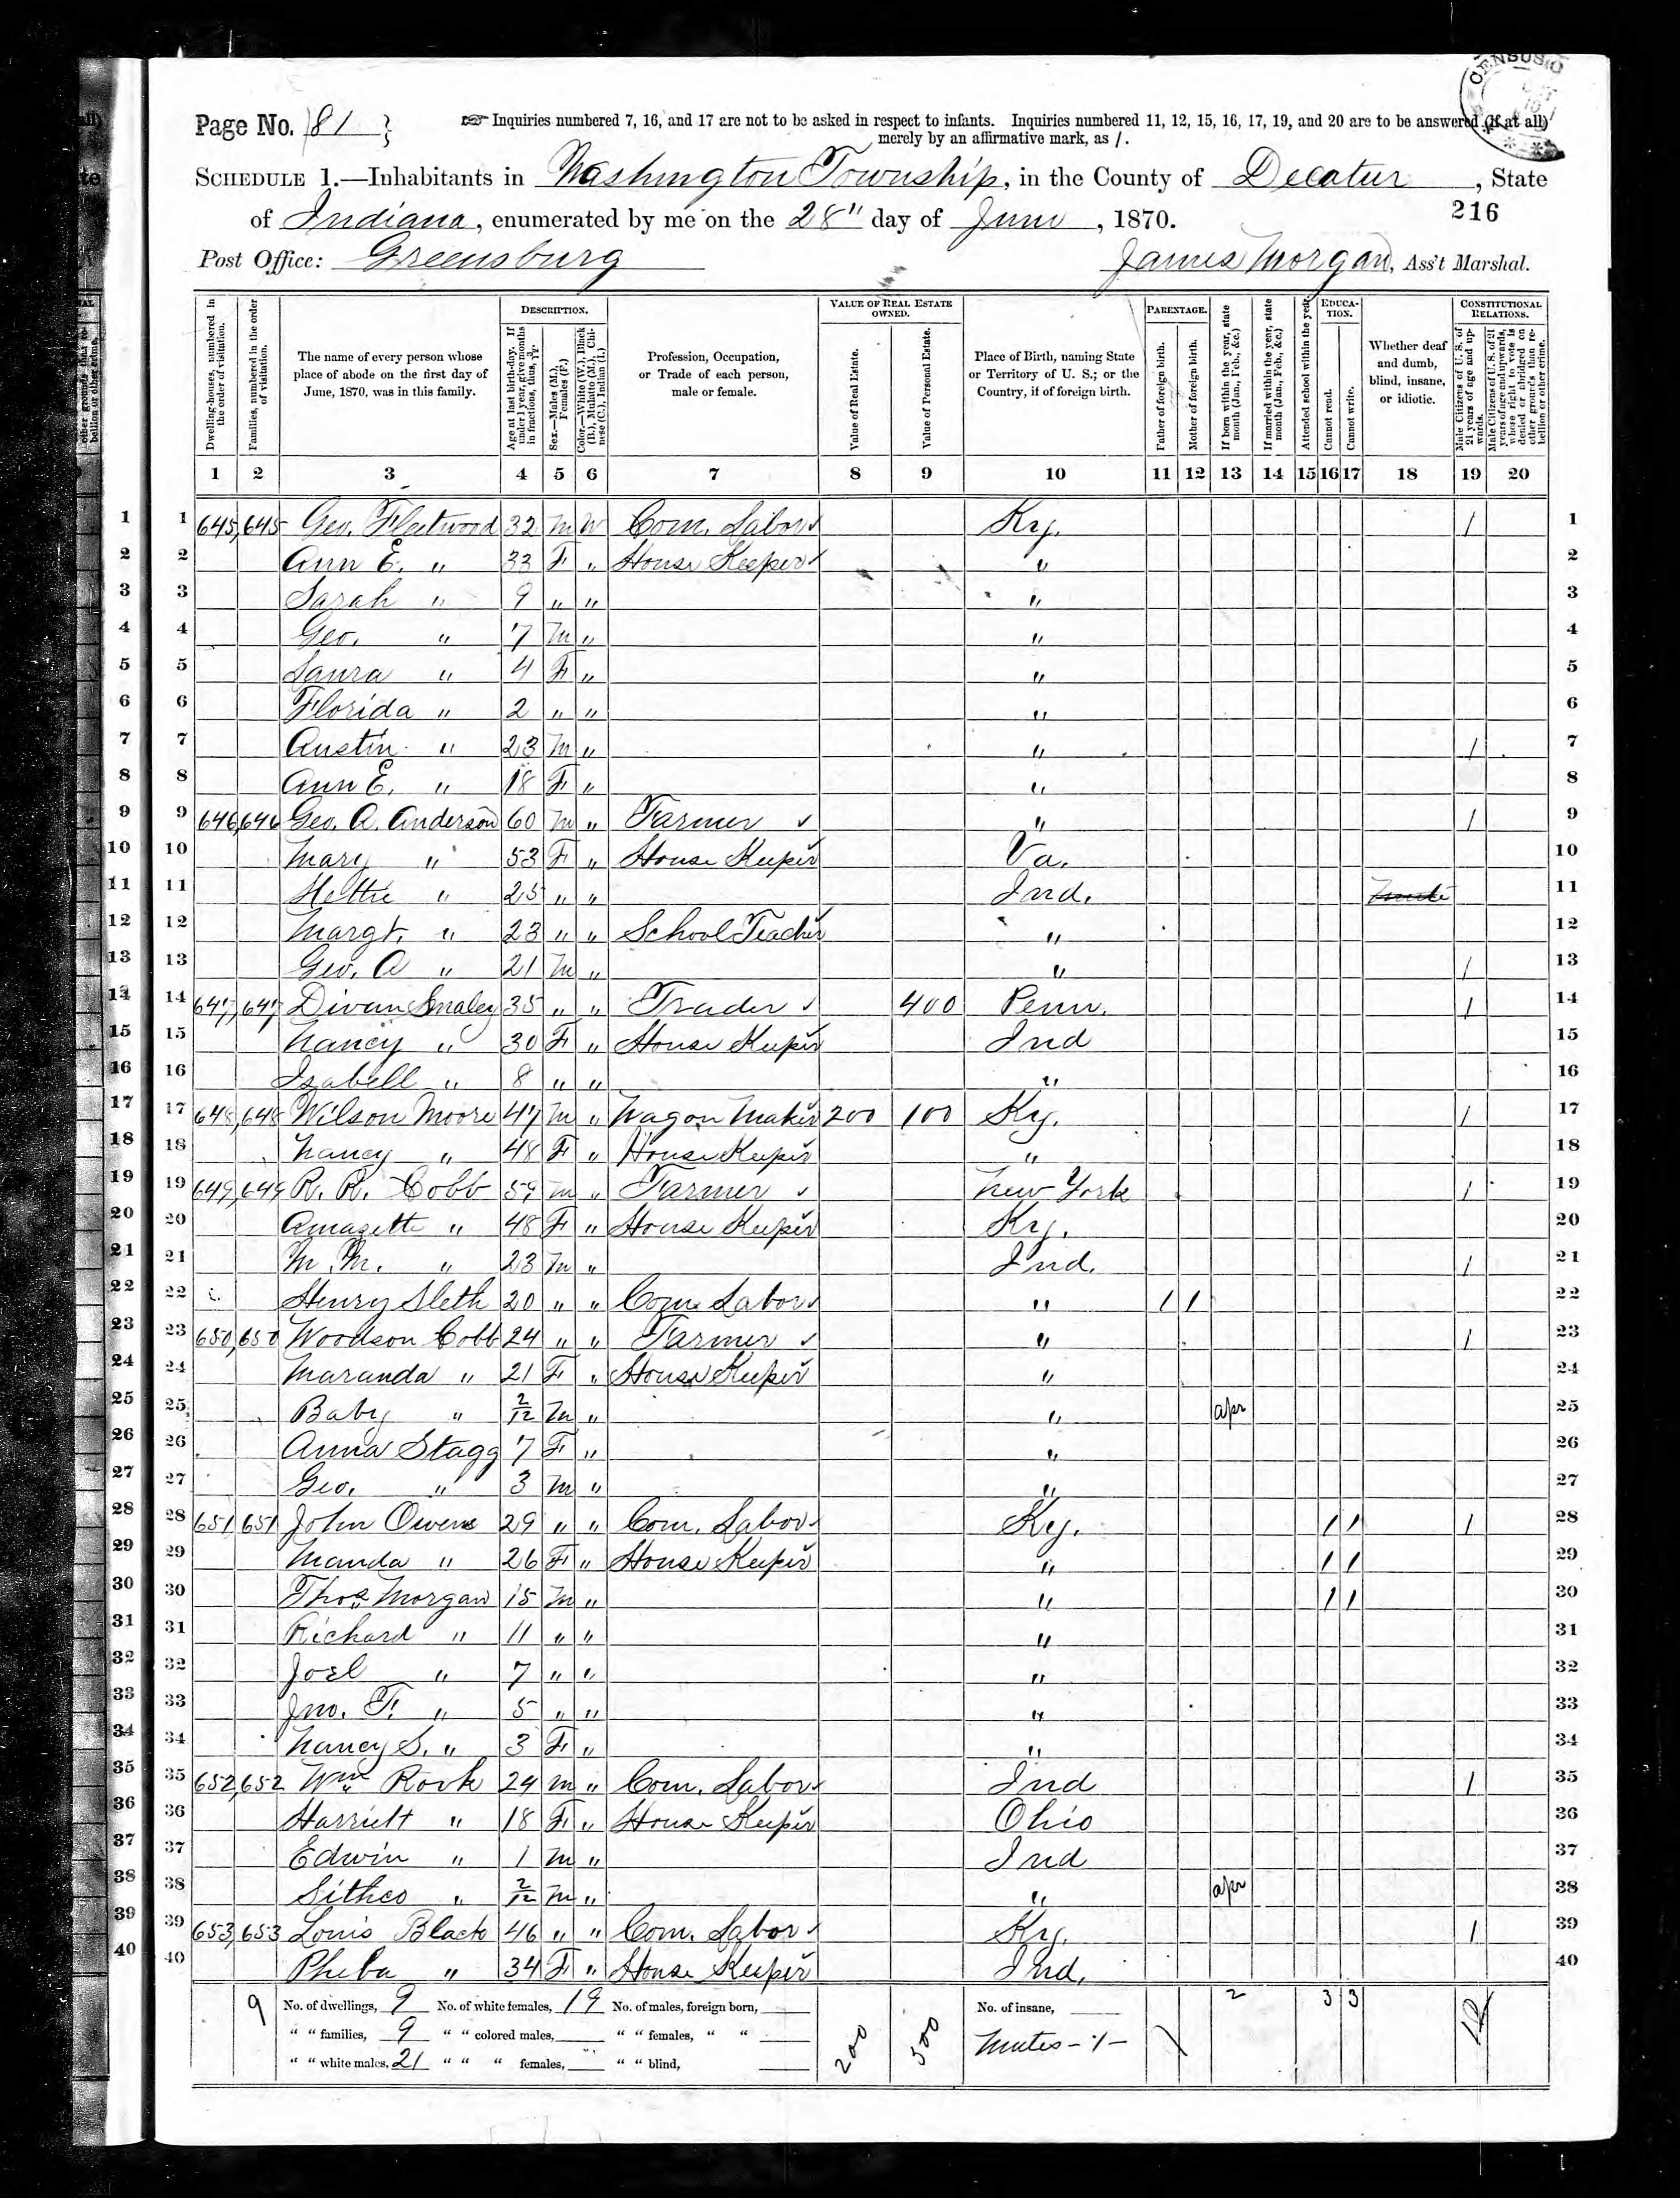 Page No. 81
☞ Inquiries numbered 7, 16, and 17 are not to be asked in respect to infants. Inquiries numbered 11, 12, 15, 16, 17, 19, and 20 are to be answered (if at all)
merely by an affirmative mark, as /.
SCHEDULE 1.—Inhabitants in Washington Township, in the County of Decatur, State
of Indiana, enumerated by me on the 28" day of June, 1870.
216
Post Office: Greensburg
James Morgan, Ass't Marshal.
Dwelling-houses, numbered in the order of visitation.
Families, numbered in the order of visitation.
The name of every person whose place of abode on the first day of June, 1870, was in this family.
DESCRIPTION.
Age at last birth-day. If under 1 year, give months in fractions, thus, 3/12.
Sex.—Males (M.), Females (F.)
Color.—White (W.), Black (B.), Mulatto (M.), Chinese (C.), Indian (I.)
Profession, Occupation, or Trade of each person, male or female.
VALUE OF REAL ESTATE OWNED.
Value of Real Estate.
Value of Personal Estate.
Place of Birth, naming State or Territory of U. S.; or the Country, if of foreign birth.
PARENTAGE.
Father of foreign birth.
Mother of foreign birth.
If born within the year, state month (Jan., Feb., &c.)
If married within the year, state month (Jan., Feb., &c.)
Attended school within the year.
EDUCATION.
Cannot read.
Cannot write.
Whether deaf and dumb, blind, insane, or idiotic.
CONSTITUTIONAL RELATIONS.
Male Citizens of U. S. of 21 years of age and upwards.
Male Citizens of U. S. of 21 years of age and upwards, whose right to vote is denied or abridged on other grounds than rebellion or other crime.
1 2 3 4 5 6 7 8 9 10 11 12 13 14 15 16 17 18 19 20
1 1 645, 645 Geo. Fleetwood 32 M W Com. Labor Ky. / 1
2 2 Ann E. " 33 F " House Keeper " 2
3 3 Sarah " 9 " " " 3
4 4 Geo. " 7 M " " 4
5 5 Laura " 4 F " " 5
6 6 Florida " 2 " " " 6
7 7 Austin " 23 M " " / 7
8 8 Ann E. " 18 F " " 8
9 9 646, 646 Geo. A. Anderson 60 M " Farmer " / 9
10 10 Mary " 53 F " House Keeper Va. 10
11 11 Hettie " 25 " " Ind. 11
12 12 Margt. " 23 " " School Teacher " 12
13 13 Geo. A " 21 M " " / 13
14 14 647, 647 Smaley 35 " " Trader 400 Penn. / 14
15 15 Nancy " 30 F " House Keeper Ind 15
16 16 Isabell " 8 " " " 16
17 17 648, 648 Wilson Moore 47 M " Wagon Maker 200 100 Ky. / 17
18 18 Nancy " 48 F " House Keeper " 18
19 19 649, 649 R. R. Cobb 59 M " Farmer New York / 19
20 20 Amazette " 48 F " House Keeper Ky. 20
21 21 M. M. " 23 M " Ind. / 21
22 22 Henry Sleth 20 " " Com. Labor " / / 22
23 23 650, 650 Woodson Cobb 24 " " Farmer " / 23
24 24 Maranda " 21 F " House Keeper " 24
25 25 Baby " 2/12 M " " apr 25
26 26 Anna Stagg 7 F " " 26
27 27 Geo. " 3 M " " 27
28 28 651, 651 John Owens 29 " " Com. Labor Ky. / / / 28
29 29 Manda " 26 F " House Keeper " / / 29
30 30 Thos. Morgan 15 M " " / / 30
31 31 Richard " 11 " " " 31
32 32 Joel " 7 " " " 32
33 33 Jno. F. " 5 " " " 33
34 34 Nancy S. " 3 F " " 34
35 35 652, 652 Wm Rork 24 M " Com. Labor Ind / 35
36 36 Harriett " 18 F " House Keeper Ohio 36
37 37 Edwin " 1 M " Ind 37
38 38 " 2/12 M " " apr 38
39 39 653, 653 Louis Black 46 " " Com. Labor Ky. / 39
40 40 Pheba " 34 F " House Keeper Ind. 40
9 No. of dwellings, 9 No. of white females, 19 No. of males, foreign born, No. of insane, 2 3 3
" " families, 9 " " colored males, " " females, " " 200 500 Mutes - 1 - / 12
" " white males, 21 " " " females, " " blind,